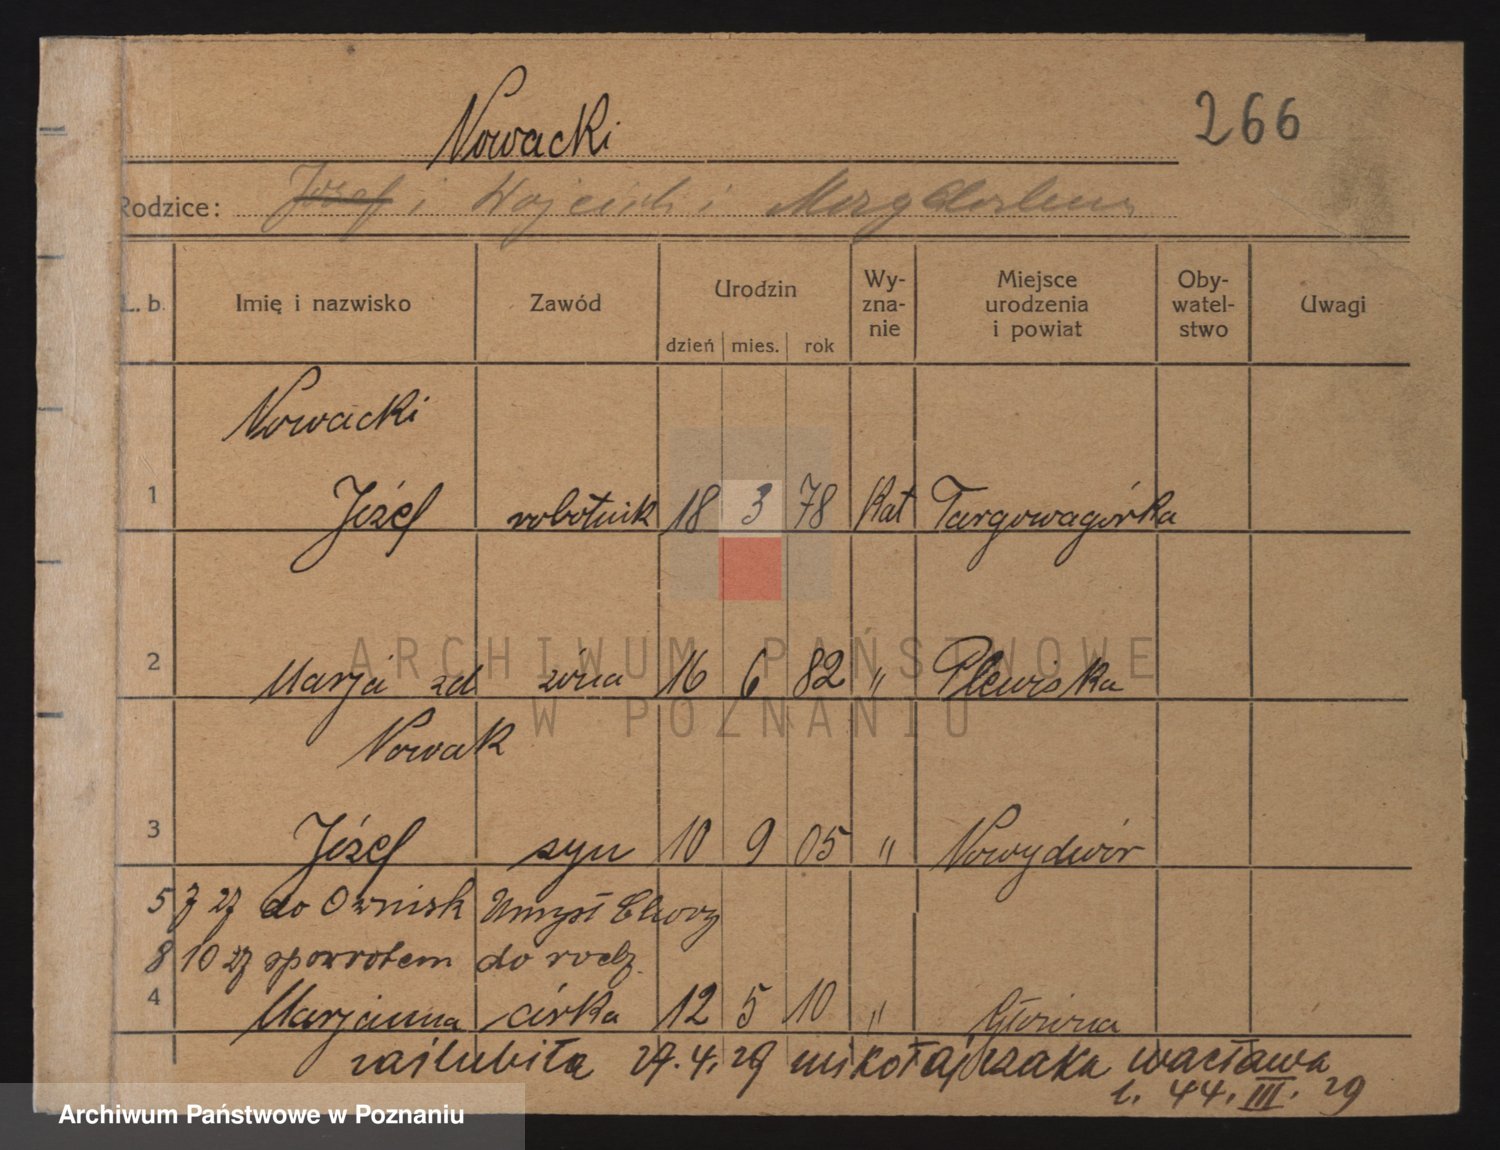 Nowacki
266
Rodzice: Józef i Wojciech i Magdalena
L. b. Imię i nazwisko Zawód Urodzin dzień mies. rok Wy-zna-nie Miejsce urodzenia i powiat Oby-watel-stwo Uwagi
Nowacki
1 Józef robotnik 18 3 78 Kat Targowagórka
2 Marja zd żona 16 6 82 " Plewiska
Nowak
3 Józef syn 10 9 05 " Nowydwór
5 7 27 do Owinisk Umysł Chory
8 10 27 spowrotem do rodz.
4 Marjanna córka 12 5 10 " Główna
zaślubiła 27.4.29 mikołajczaka wacława
l. 44. III. 29
ARCHIWUM PAŃSTWOWE
W POZNANIU
Archiwum Państwowe w Poznaniu